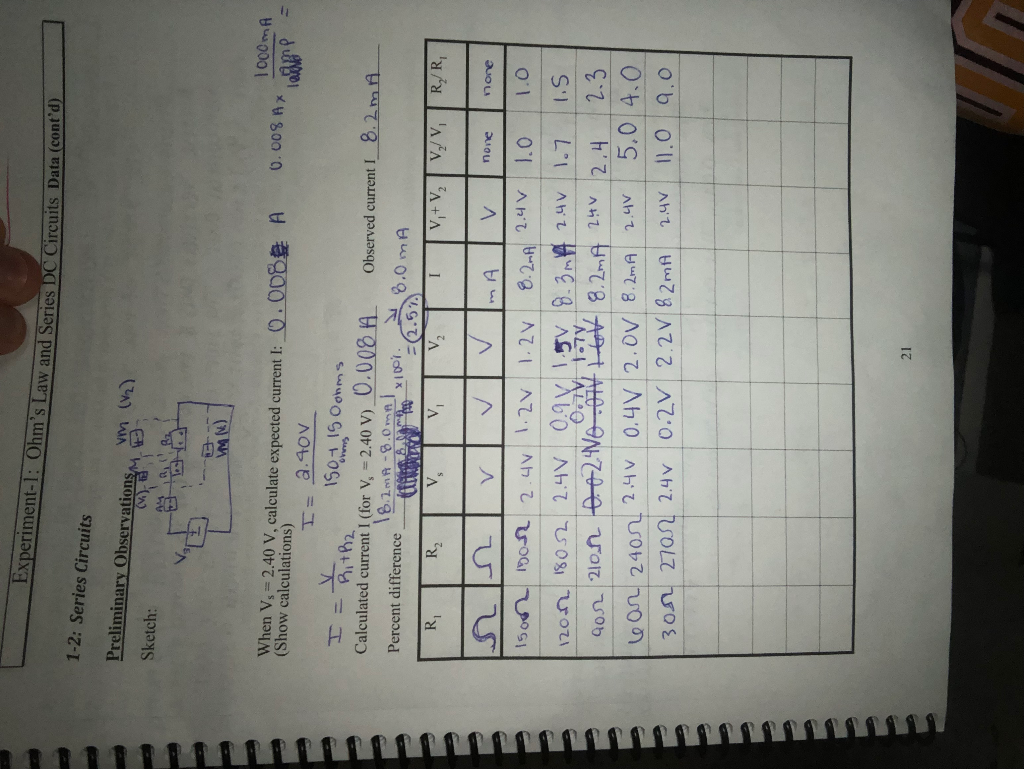 Experiment-1: Ohm's Law and Series DC Circuits Data (cont'd)
1-2: Series Circuits
Preliminary Observations
Sketch:
VM (V2)
Vs
R1
R2
When Vs = 2.40 V, calculate expected current I: 0.008 A 0.008 A x 1000mA / amp =
(Show calculations)
I = V / R1+R2 I = 2.40V / 150+150ohms
ohms
Calculated current I (for Vs = 2.40 V) 0.008 A Observed current I 8.2mA
Percent difference |8.2mA-8.0mA| / 8.0mA x100% = 2.5%
R1 R2 Vs V1 V2 I V1+V2 V2/V1 R2/R1
Ω Ω V V V mA V none none
150Ω 150Ω 2.4V 1.2V 1.2V 8.2mA 2.4V 1.0 1.0
120Ω 180Ω 2.4V 0.9V 1.5V 8.3mA 2.4V 1.7 1.5
90Ω 210Ω 2.4V 0.7V 1.7V 8.2mA 2.4V 2.4 2.3
60Ω 240Ω 2.4V 0.4V 2.0V 8.2mA 2.4V 5.0 4.0
30Ω 270Ω 2.4V 0.2V 2.2V 8.2mA 2.4V 11.0 9.0
21